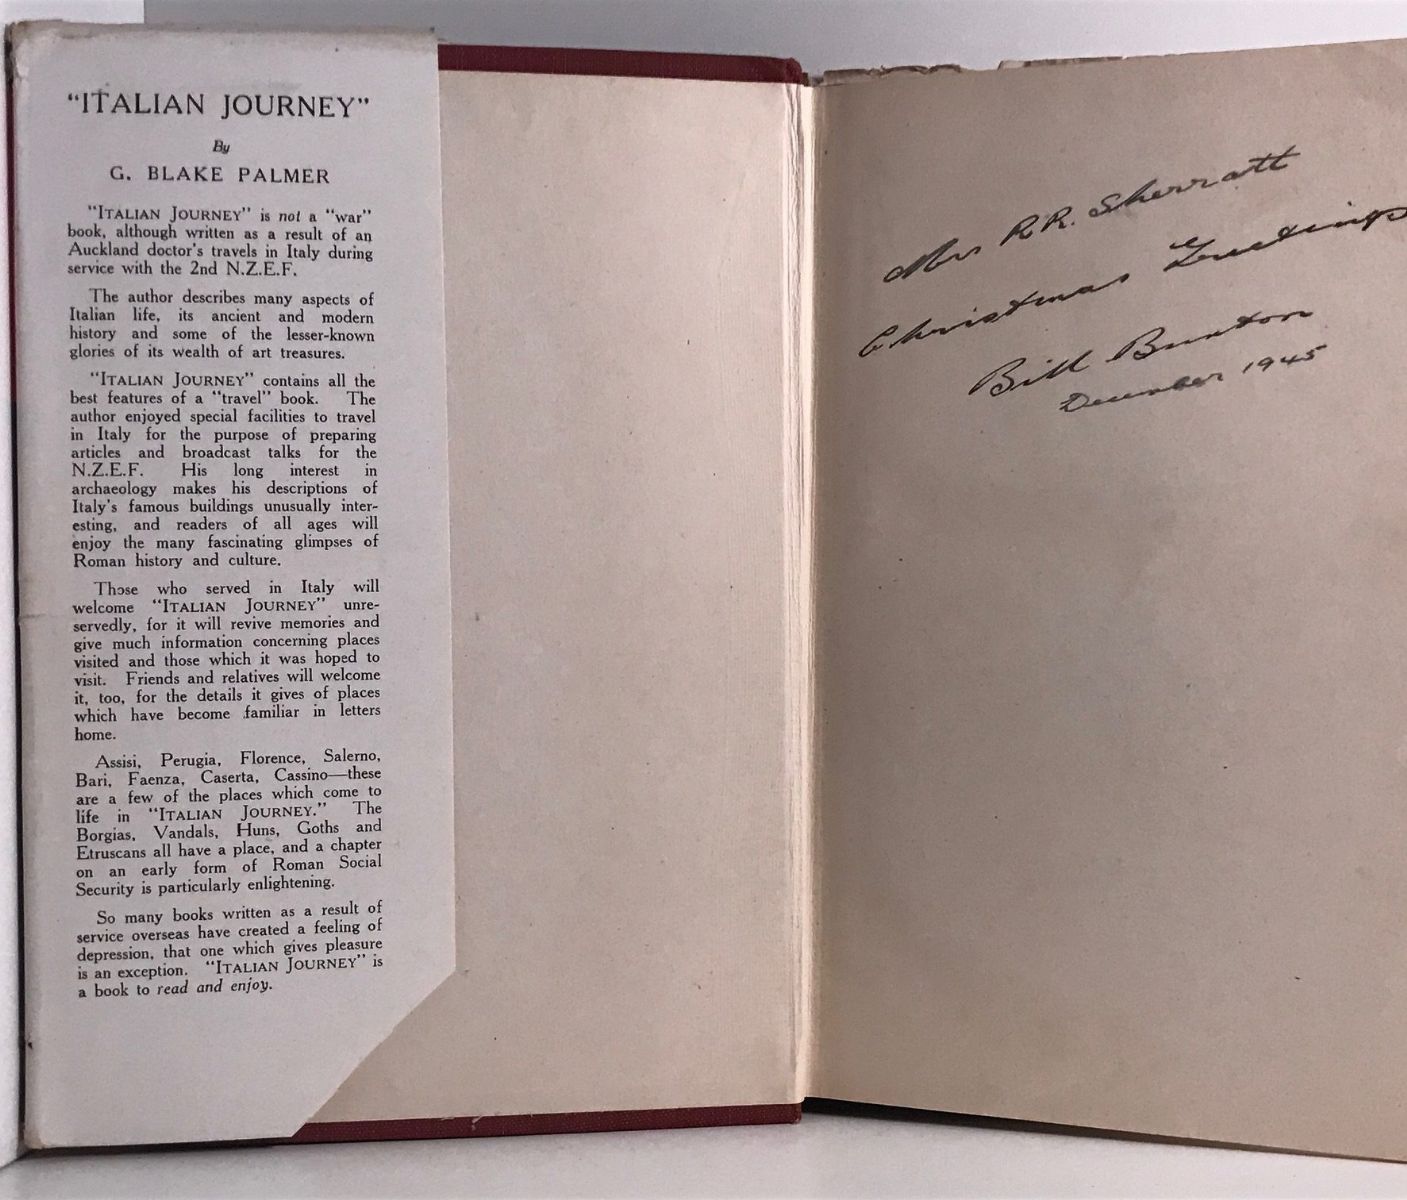 "ITALIAN JOURNEY"
By
G. BLAKE PALMER
"ITALIAN JOURNEY" is not a "war"
book, although written as a result of an
Auckland doctor's travels in Italy during
service with the 2nd N.Z.E.F.
The author describes many aspects of
Italian life, its ancient and modern
history and some of the lesser-known
glories of its wealth of art treasures.
"ITALIAN JOURNEY" contains all the
best features of a "travel" book. The
author enjoyed special facilities to travel
in Italy for the purpose of preparing
articles and broadcast talks for the
N.Z.E.F. His long interest in
archaeology makes his descriptions of
Italy's famous buildings unusually inter-
esting, and readers of all ages will
enjoy the many fascinating glimpses of
Roman history and culture.
Those who served in Italy will
welcome "ITALIAN JOURNEY" unre-
servedly, for it will revive memories and
give much information concerning places
visited and those which it was hoped to
visit. Friends and relatives will welcome
it, too, for the details it gives of places
which have become familiar in letters
home.
Assisi, Perugia, Florence, Salerno,
Bari, Faenza, Caserta, Cassino—these
are a few of the places which come to
life in "ITALIAN JOURNEY." The
Borgias, Vandals, Huns, Goths and
Etruscans all have a place, and a chapter
on an early form of Roman Social
Security is particularly enlightening.
So many books written as a result of
service overseas have created a feeling of
depression, that one which gives pleasure
is an exception. "ITALIAN JOURNEY" is
a book to read and enjoy.
Mrs R.R. Sherratt
Christmas Greetings
Bill Buxton
December 1945